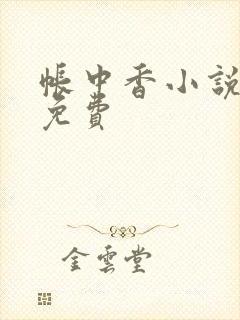 帳中香小說
免費
金雲堂